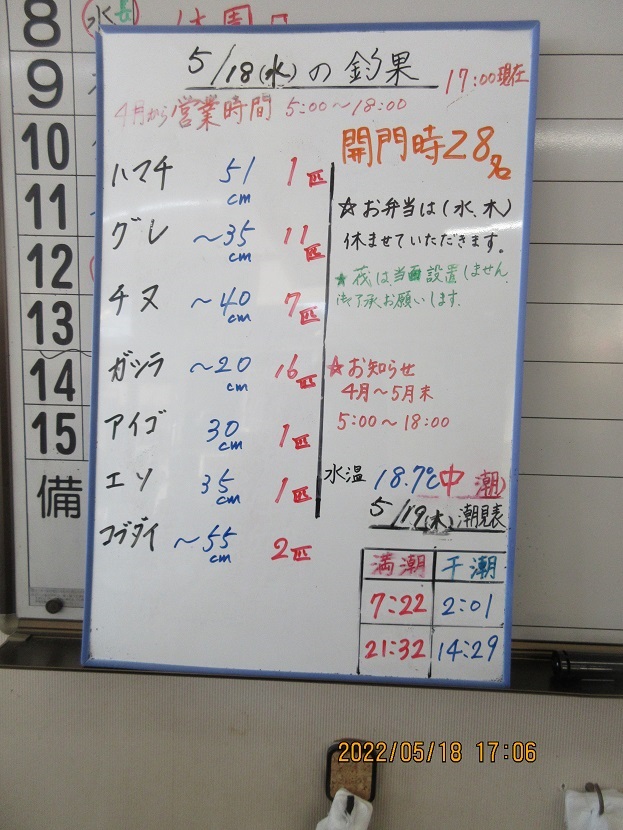 5/18(水)の釣果
17:00現在
4月から営業時間 5:00〜18:00
開門時28名
ハマチ 51cm 1匹
グレ 〜35cm 11匹
チヌ 〜40cm 7匹
ガシラ 〜20cm 16匹
アイゴ 30cm 1匹
エソ 35cm 1匹
コブダイ 〜55cm 2匹
☆お弁当は(水、木)
休ませていただきます。
★筏は当面設置しません。
御了承お願いします。
☆お知らせ
4月〜5月末
5:00〜18:00
水温 18.7℃ 中潮
5/19(木)潮見表
満潮 干潮
7:22 2:01
21:32 14:29
8
9
10
11
12
13
14
15
備
2022/05/18 17:06